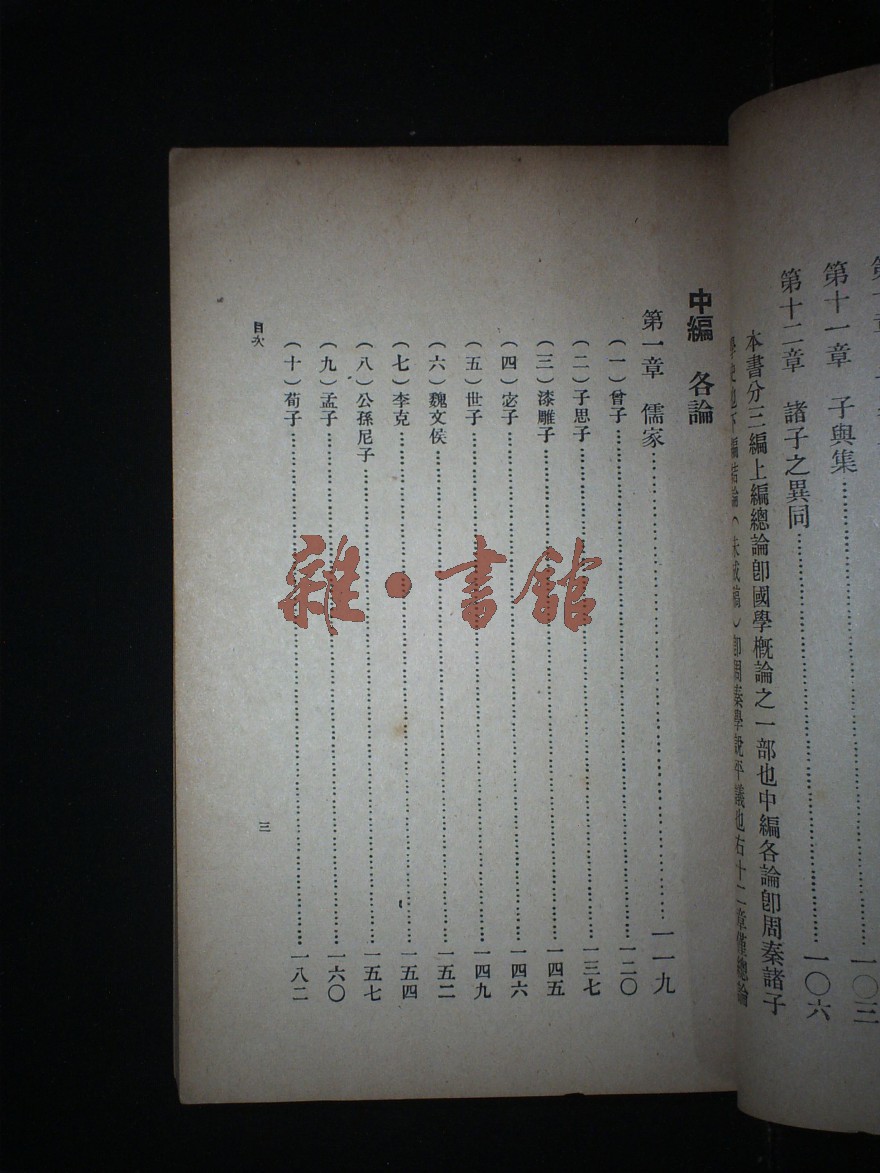 第十一章　子與集……一〇三
第十二章　諸子之異同……一〇六
本書分三編上編總論卽國學槪論之一部也中編各論卽周秦諸子
論（未成稿）卽周秦學說平議也右十二章僅總論
中編　各論
第一章　儒家……一一九
（一）曾子……一二〇
（二）子思子……一三七
（三）漆雕子……一四五
（四）宓子……一四六
（五）世子……一四九
（六）魏文侯……一五二
（七）李克……一五四
（八）公孫尼子……一五七
（九）孟子……一六〇
（十）荀子……一八二
目次
三
雜·書館